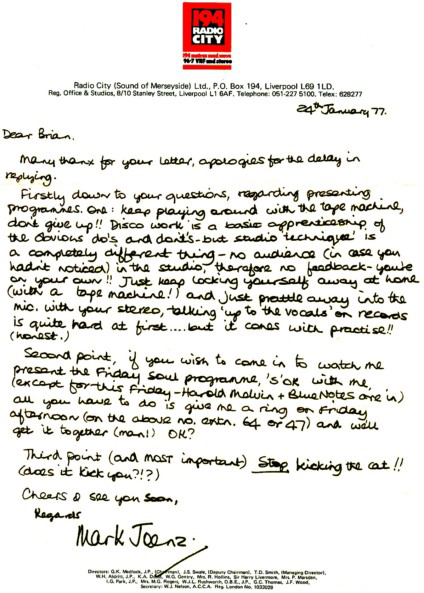 194
RADIO
CITY
194 metres med wave
96·7 VHF and stereo
Radio City (Sound of Merseyside) Ltd., P.O. Box 194, Liverpool L69 1LD.
Reg. Office & Studios, 8/10 Stanley Street, Liverpool L1 6AF. Telephone: 051-227 5100. Telex: 628277
24th January 77.
Dear Brian.
Many thanx for your letter, apologies for the delay in
replying.
Firstly down to your questions, regarding presenting
programmes. One: keep playing around with the tape machine,
dont give up!! Disco work is a basic apprenticeship of
the obvious do's and dont's - but studio 'technique' is
a completely different thing - no audience (in case you
hadn't noticed) in the studio, therefore no feedback - you're
on your own!! Just keep locking yourself away at home
(with a tape machine!) and just prattle away into the
mic. with your stereo, talking 'up to the vocals' on records
is quite hard at first....but it comes with practise!!
(honest.)
Second point, if you wish to come in to watch me
present the Friday Soul programme, 's'ok with me,
(except for this Friday - Harold Melvin + Blue Notes are in)
all you have to do is give me a ring on Friday
afternoon (on the above no. extn. 64 or 47) and we'll
get it together (man!) OK?
Third point (and most important) Stop kicking the cat!!
(does it kick you?!?)
Cheers & see you soon,
Regards
Mark Joenz.
Directors: G.K. Medlock, J.P., (Chairman), J.S. Swale, (Deputy Chairman), T.D. Smith, (Managing Director),
W.H. Aldritt, J.P., K.A. Dodd, W.G. Gentry, Mrs. R. Hollins, Sir Harry Livermore, Mrs. P. Marsden,
I.G. Park, J.P., Mrs. M.G. Rogers, W.J.L. Rushworth, O.B.E., J.P., G.C. Thomas, J.F. Wood,
Secretary: W.J. Nelson, A.C.C.A. Reg. London No. 1033029